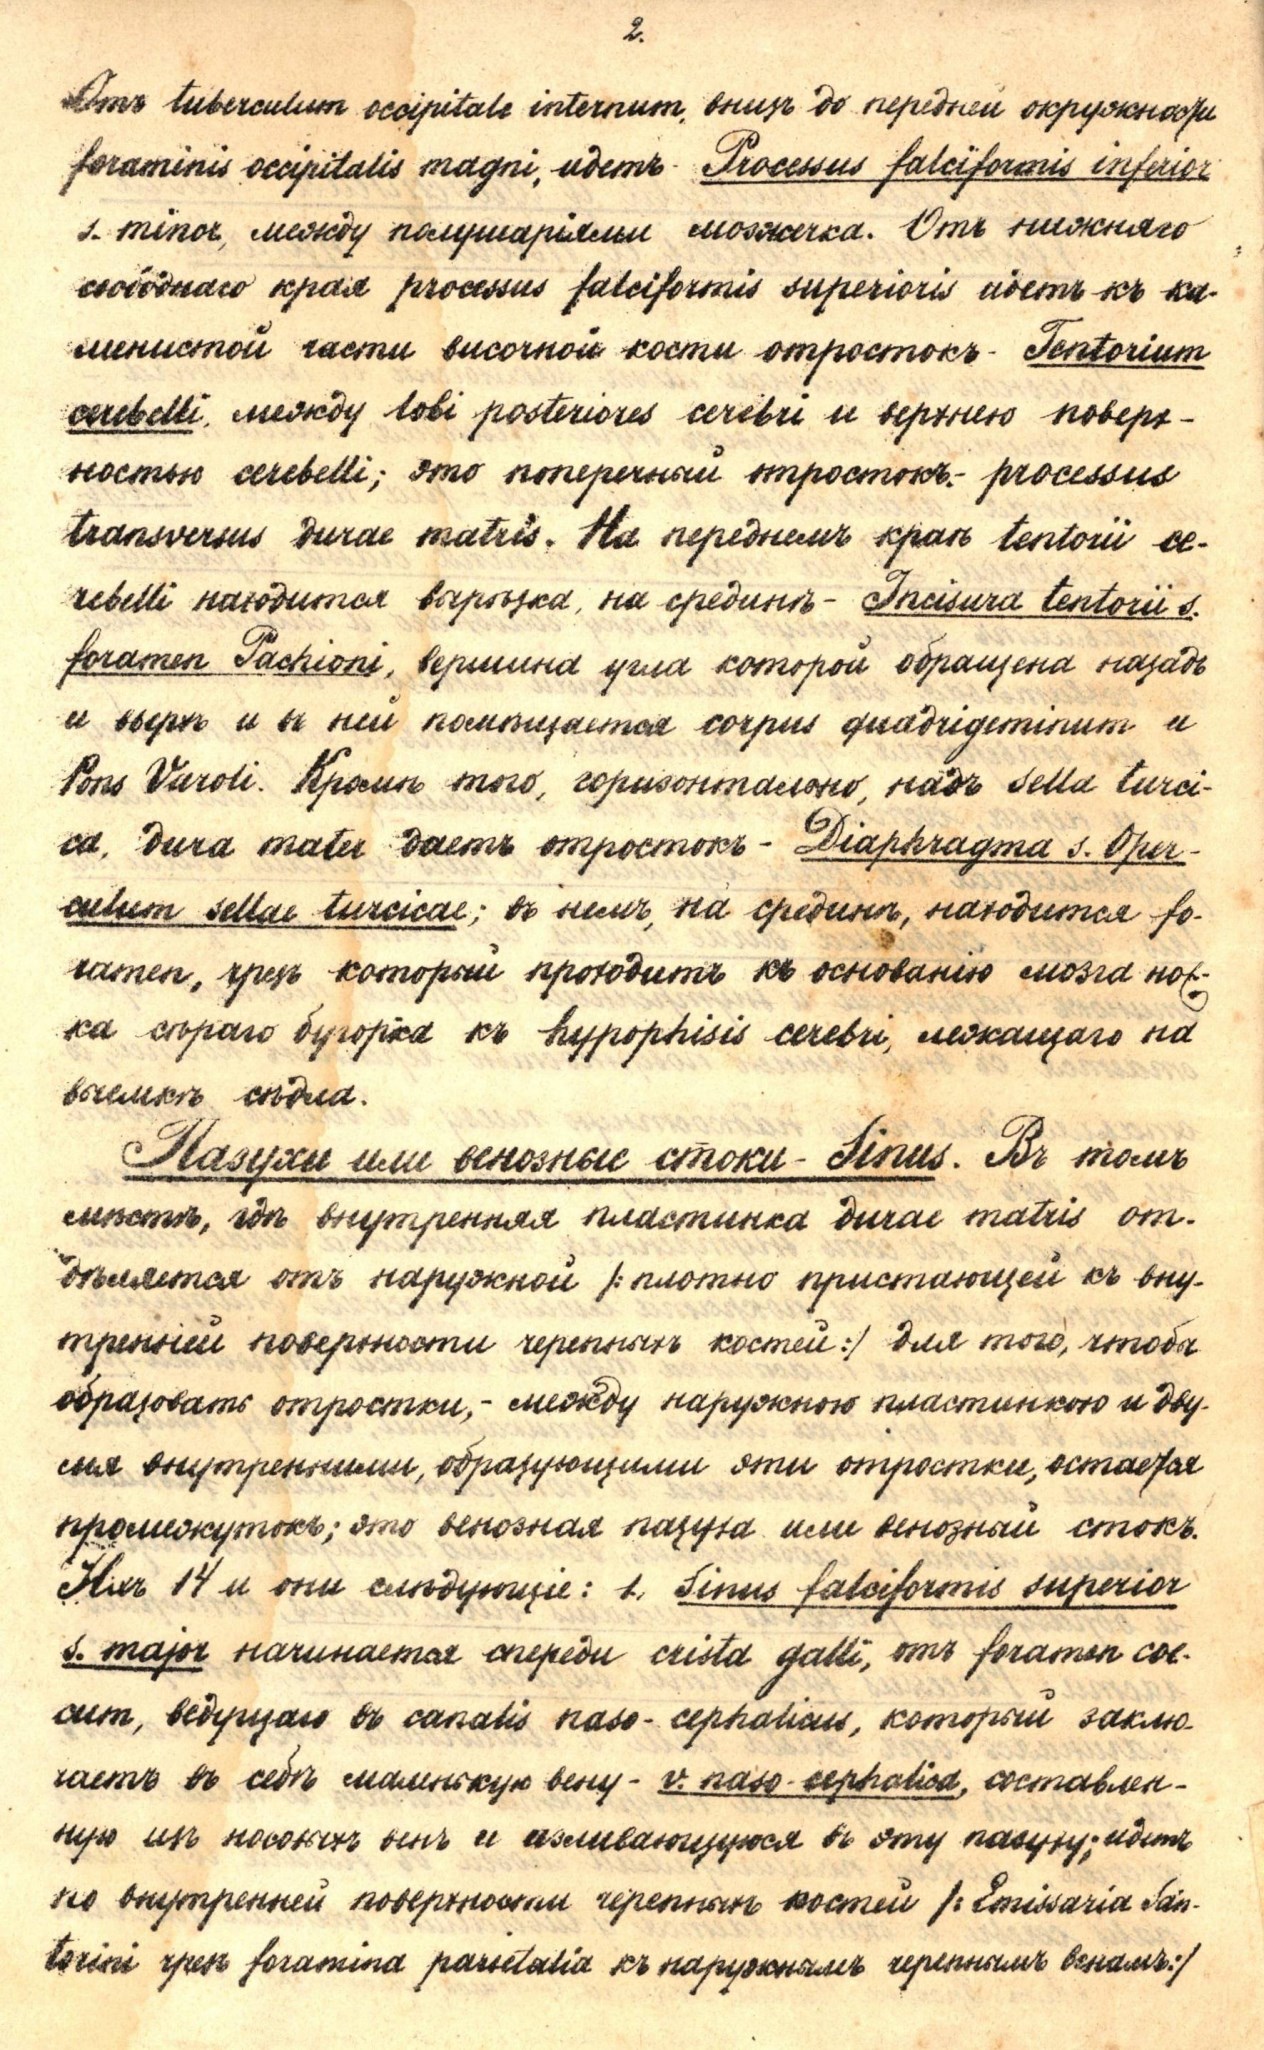 2.
Отъ tuberculum occipitale internum, внизъ до передней окружности
foraminis occipitalis magni, идетъ - Processus falciformis inferior
s. minor, между полушаріями мозжечка. Отъ нижняго
свободнаго края processus falciformis superioris идетъ къ ка-
менистой части височной кости отростокъ - Tentorium
cerebelli, между lobi posteriores cerebri и верхнею поверх-
ностью cerebelli; это поперечный отростокъ - processus
transversus durae matris. На переднемъ краѣ tentorii ce-
rebelli находится вырѣзка, на срединѣ - Incisura tentorii s.
foramen Pachioni, вершина угла которой обращена назадъ
и вверхъ и въ ней помѣщается corpus quadrigeminum и
Pons Varoli. Кромѣ того, горизонтально, надъ sella turci-
ca, dura mater даетъ отростокъ - Diaphragma s. Oper-
culum sellae turcicae; въ немъ, на срединѣ, находится fo-
ramen, чрезъ который проходитъ къ основанію мозга нож-
ка сѣраго бугорка къ hypophisis cerebri, лежащаго на
выемкѣ сѣдла.
Пазухи или венозные стоки - Sinus. Въ томъ
мѣстѣ, гдѣ внутренняя пластинка durae matris от-
дѣляется отъ наружной /: плотно пристающей къ вну-
тренней поверхности черепныхъ костей :/ для того, чтобы
образовать отростки, - между наружною пластинкою и дву-
мя внутренними, образующими эти отростки, остается
промежутокъ; это венозная пазуха или венозный стокъ.
Ихъ 14 и они слѣдующіе: 1, Sinus falciformis superior
s. major начинается спереди crista galli, отъ foramen coe-
cum, ведущаго въ canalis naso-cephalicus, который заклю-
чаетъ въ себѣ маленькую вену - v. naso-cephalica, составлен-
ную изъ носовыхъ венъ и изливающуюся въ эту пазуху; идетъ
по внутренней поверхности черепныхъ костей /: Emissaria San-
torini чрезъ foramina parietalia къ наружнымъ черепнымъ венамъ :/